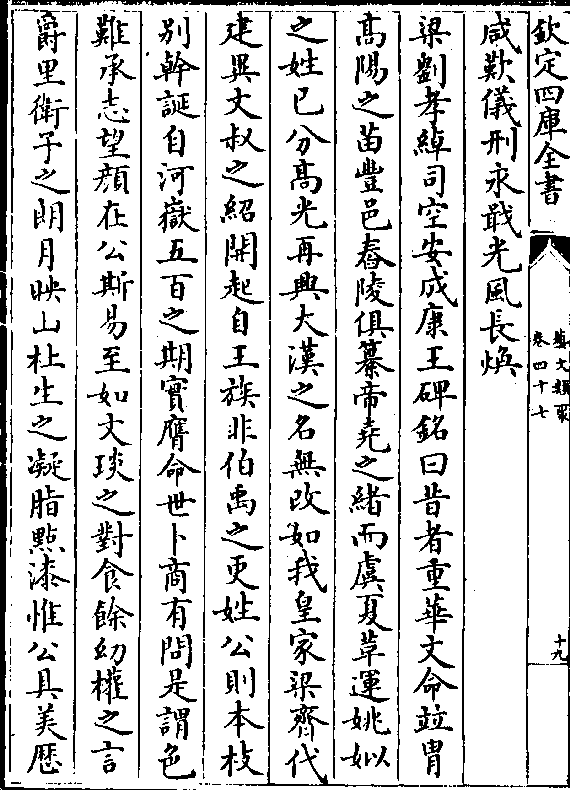 欽定四庫全書
藝文類聚
卷四十七
十九
咸歎儀刑永戢光風長煥
梁劉孝綽司空安成康王碑銘曰昔者重華文命竝胄
髙陽之苗豐邑舂陵俱纂帝堯之緒而虞夏革運姚姒
之姓已分髙光再興大漢之名無改如我皇家梁齊代
建異文叔之紹開起自王族非伯禹之更姓公則本枝
别幹誕自河嶽五百之期實膺命世卜商有問是謂色
難承志望顔在公斯易至如文琰之對食餘幼權之言
爵里衛子之朗月映山杜生之凝脂㸃漆惟公具美歴